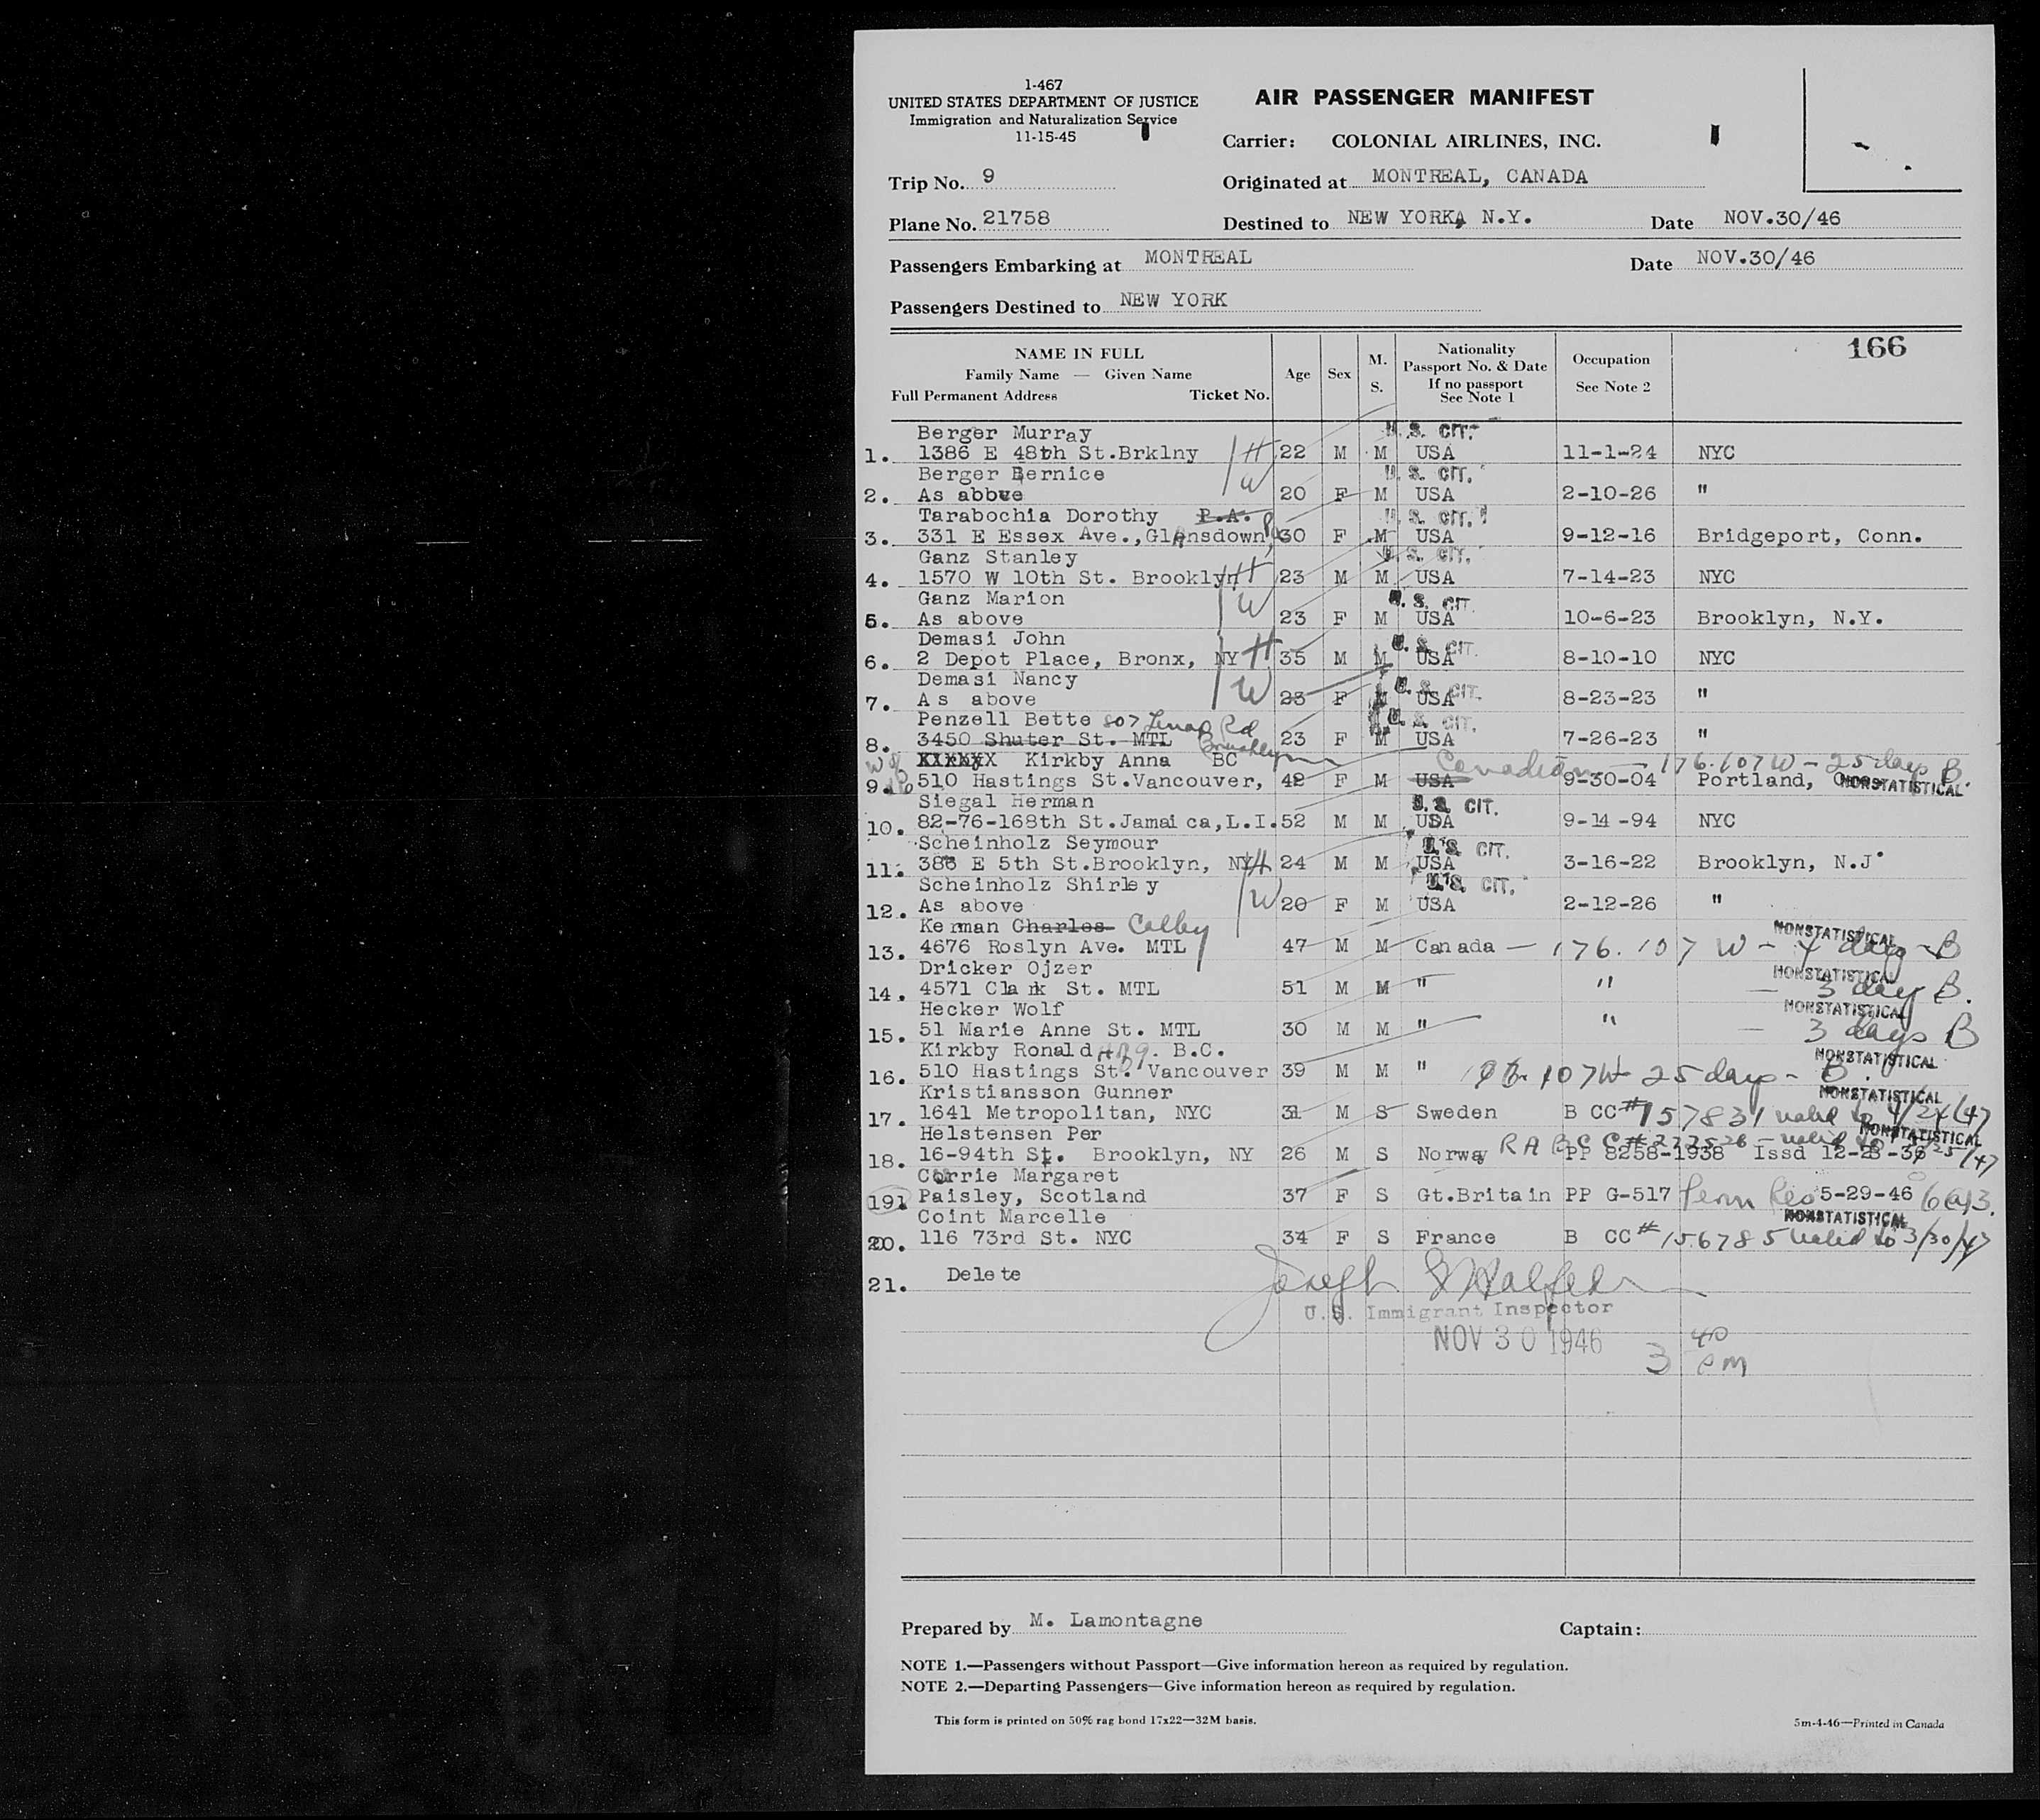 1-467
UNITED STATES DEPARTMENT OF JUSTICE
Immigration and Naturalization Service
11-15-45
AIR PASSENGER MANIFEST
Carrier: COLONIAL AIRLINES, INC.
Trip No. 9
Originated at MONTREAL, CANADA
Plane No. 21758
Destined to NEW YORK, N.Y. Date NOV.30/46
Passengers Embarking at MONTREAL Date NOV.30/46
Passengers Destined to NEW YORK
166
NAME IN FULL
Family Name — Given Name
Full Permanent Address Ticket No.
Age Sex M. S.
Nationality
Passport No. & Date
If no passport
See Note 1
Occupation
See Note 2
Berger Murray U.S. CIT.
1. 1386 E 48th St.Brklny H 22 M M USA 11-1-24 NYC
Berger Bernice U.S. CIT.
2. As above W 20 F M USA 2-10-26 "
Tarabochia Dorothy P.A. U.S. CIT.
3. 331 E Essex Ave.,Glansdown, Pa 30 F M USA 9-12-16 Bridgeport, Conn.
Ganz Stanley U.S. CIT.
4. 1570 W 10th St. Brooklyn H 23 M M USA 7-14-23 NYC
Ganz Marion W U.S. CIT.
5. As above 23 F M USA 10-6-23 Brooklyn, N.Y.
Demasi John U.S. CIT.
6. 2 Depot Place, Bronx, NY H 35 M M USA 8-10-10 NYC
Demasi Nancy U.S. CIT.
7. As above W 23 F M USA 8-23-23 "
Penzell Bette 807 Rd Brooklyn U.S. CIT.
8. 3450 Shuter St. MTL 23 F M USA 7-26-23 "
Kirkby Anna BC Canadian — 176.107W - 25 days B.
9. 510 Hastings St.Vancouver, 42 F M USA 9-30-04 Portland, NONSTATISTICAL
Siegal Herman U.S. CIT.
10. 82-76-168th St.Jamaica,L.I. 52 M M USA 9-14-94 NYC
Scheinholz Seymour U.S. CIT.
11. 383 E 5th St.Brooklyn, NY H 24 M M USA 3-16-22 Brooklyn, N.J.
Scheinholz Shirley U.S. CIT.
12. As above W 20 F M USA 2-12-26 "
Kerman Charles Colby NONSTATISTICAL
13. 4676 Roslyn Ave. MTL 47 M M Canada — 176.107 W - 4 days - B
Dricker Ojzer NONSTATISTICAL
14. 4571 Clark St. MTL 51 M M " " — 3 days B.
Hecker Wolf NONSTATISTICAL
15. 51 Marie Anne St. MTL 30 M M " " — 3 days B
Kirkby Ronald B.C. NONSTATISTICAL
16. 510 Hastings St. Vancouver 39 M M " 107W 25 days - B.
Kristiansson Gunner NONSTATISTICAL
17. 1641 Metropolitan, NYC 31 M S Sweden B CC #157831 valid to
Helstensen Per R A B C C # NONSTATISTICAL
18. 16-94th St. Brooklyn, NY 26 M S Norway PP 8258-1938 Issd
Corrie Margaret
19. Paisley, Scotland 37 F S Gt.Britain PP G-517 Perm Res 5-29-46
Coint Marcelle NONSTATISTICAL
20. 116 73rd St. NYC 34 F S France B CC #156785 valid to 3/30/47
21. Delete
Joseph
U.S. Immigrant Inspector
NOV 30 1946
3 40 PM
Prepared by M. Lamontagne
Captain:
NOTE 1.—Passengers without Passport—Give information hereon as required by regulation.
NOTE 2.—Departing Passengers—Give information hereon as required by regulation.
This form is printed on 50% rag bond 17x22—32M basis.
5m-4-46—Printed in Canada